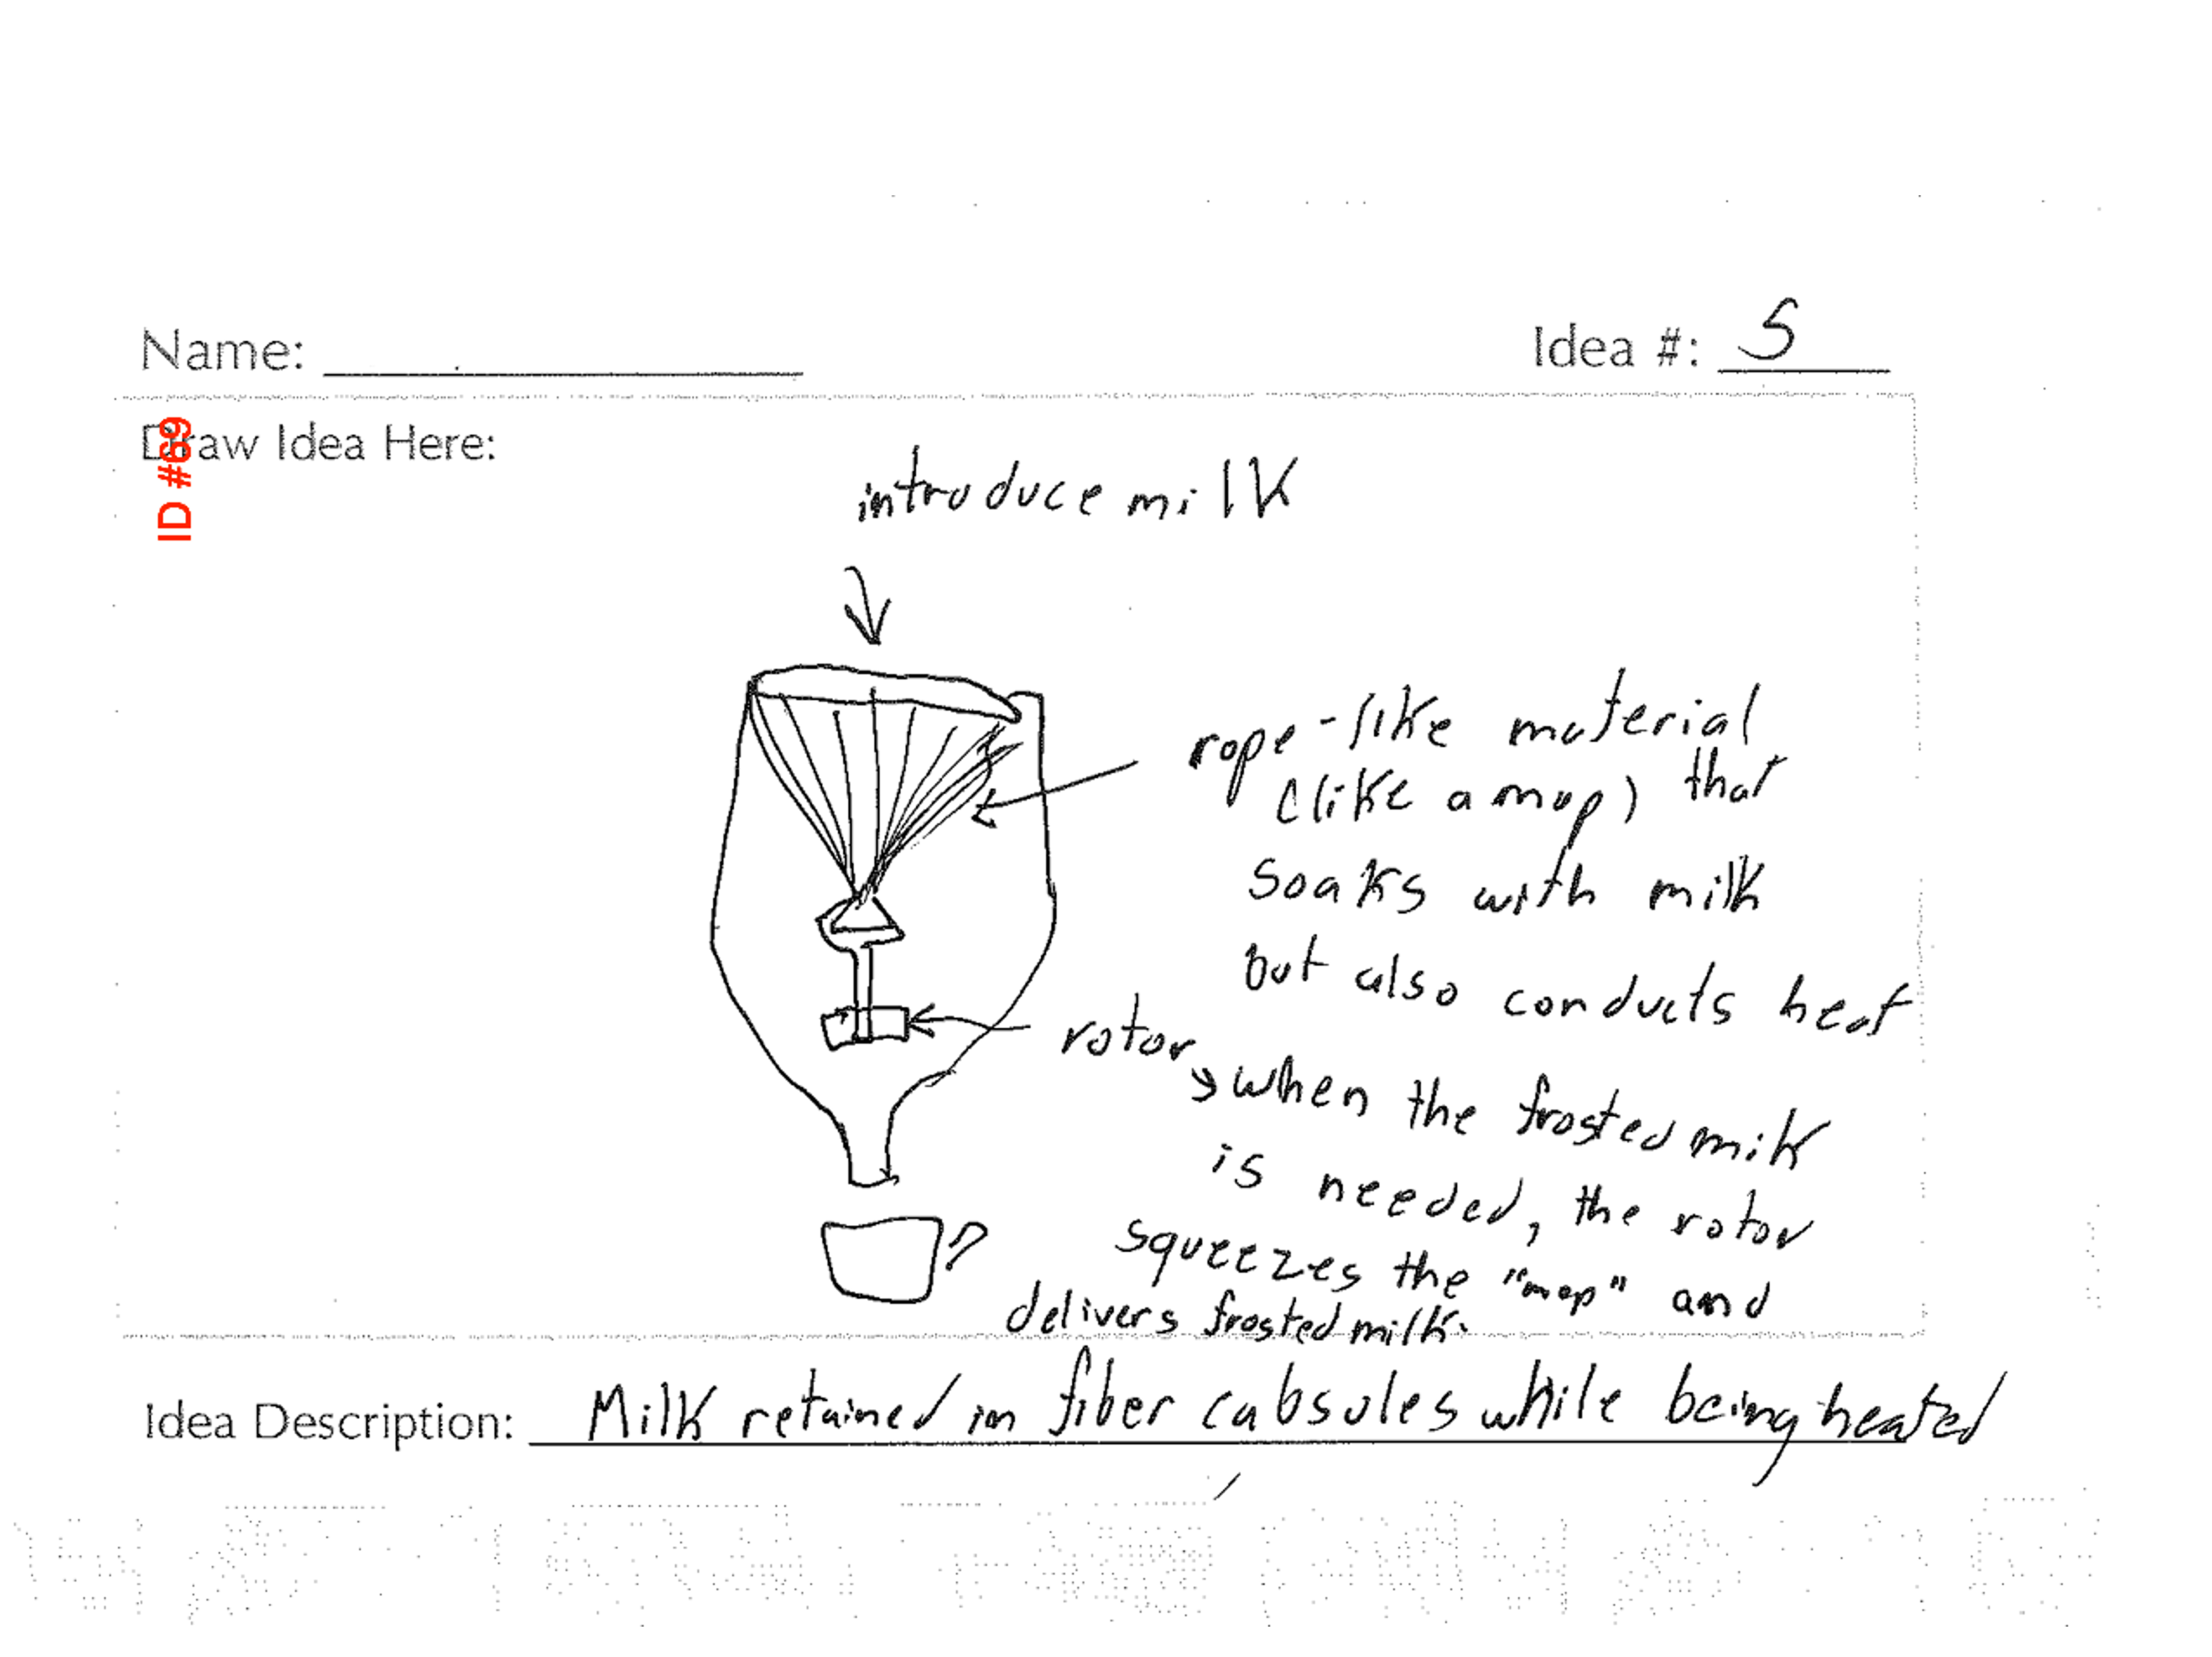 Name:
Idea #: 5
ID #69
Draw Idea Here:
introduce milk
rope-like material
(like a mop) that
soaks with milk
but also conducts heat
rotor
when the frosted milk
is needed, the rotor
squeezes the "mop" and
delivers frosted milk.
Idea Description: Milk retained in fiber cabsules while being heated